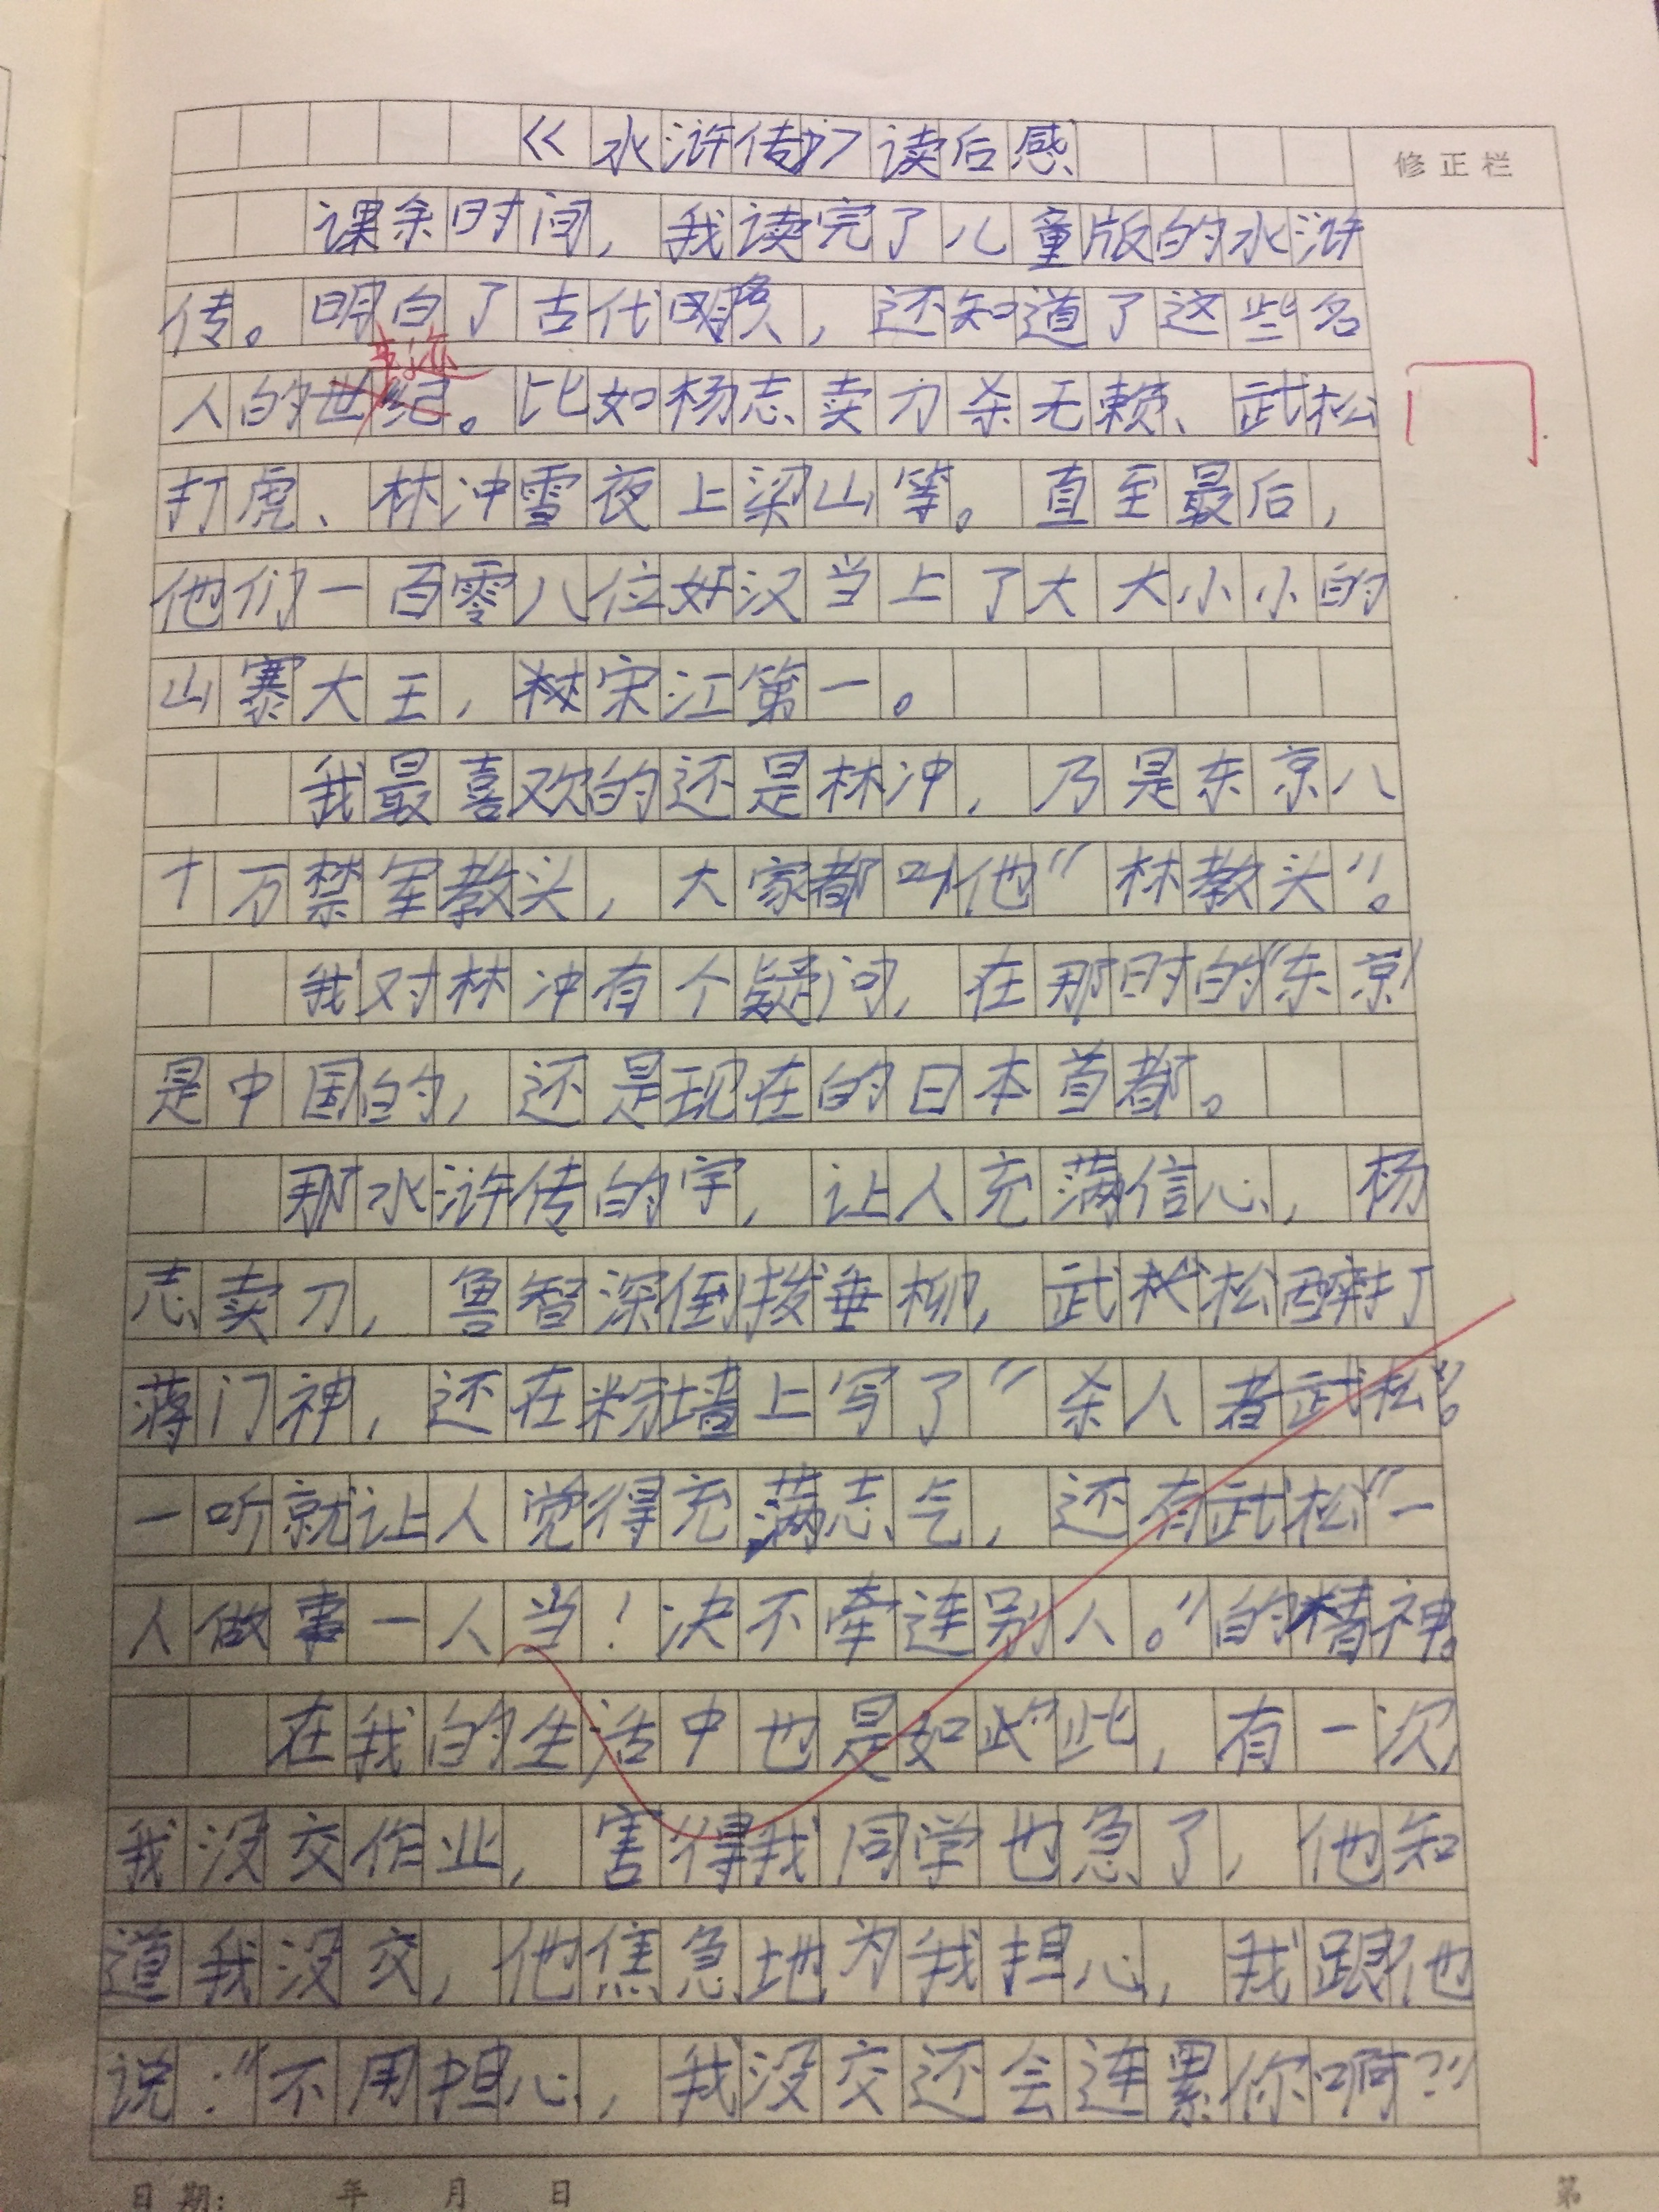 《水浒传》读后感
修正栏
课余时间，我读完了儿童版的水浒
传。明白了古代，还知道了这些名
事迹
人的世纪。比如杨志卖刀杀无赖、武松
打虎、林冲雪夜上梁山等。直至最后，
他们一百零八位好汉当上了大大小小的
山寨大王，宋江第一。
我最喜欢的还是林冲，乃是东京八
十万禁军教头，大家都叫他“林教头”。
我对林冲有个疑问，在那时的“东京”
是中国的，还是现在的日本首都。
那水浒传的字，让人充满信心，杨
志卖刀，鲁智深倒拨垂柳，武松醉打
蒋门神，还在粉墙上写了“杀人者武松”。
一听就让人觉得充满志气，还有武松“一
人做事一人当！决不牵连别人。”的精神。
在我的生活中也是如此，有一次，
我没交作业，害得我同学也急了，他知
道我没交，他焦急地为我担心，我跟他
说：“不用担心，我没交还会连累你啊？”
日期： 年 月 日
第